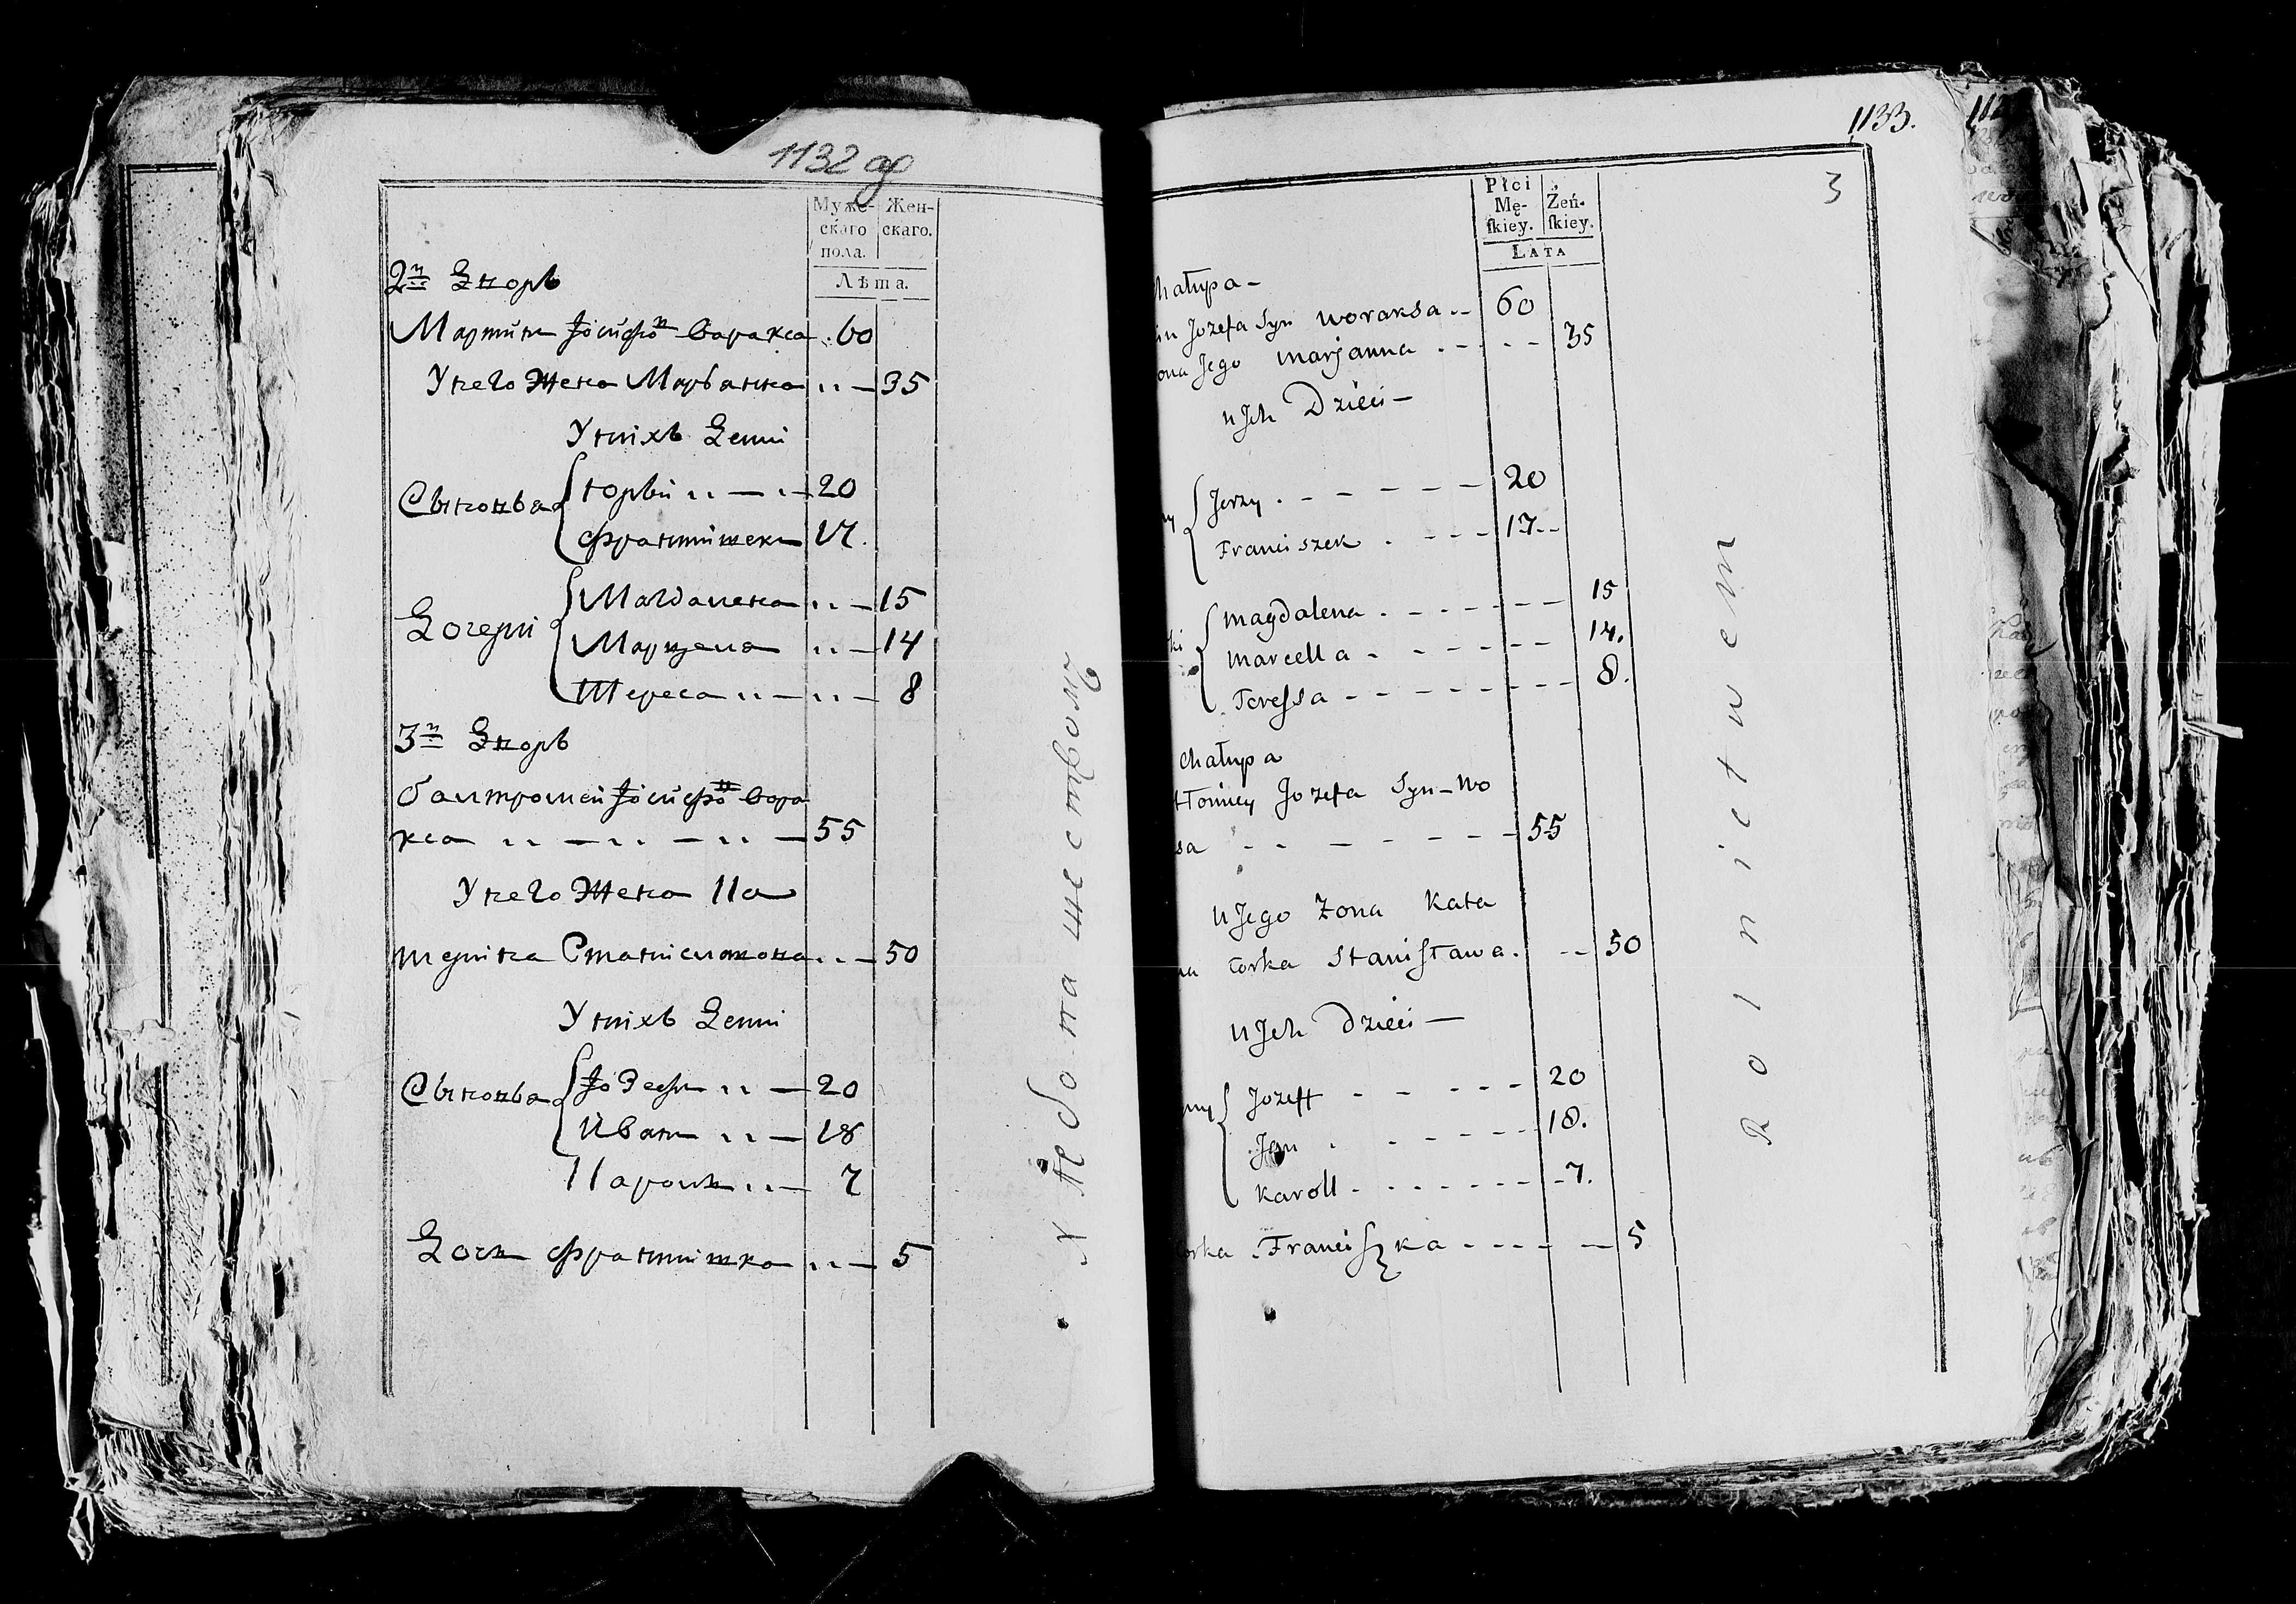 1132 об
Муже- Жен-
скаго скаго.
пола.
Лѣта.
2й Дворъ
Мартинъ Іосифовъ Воракса 60
У него Жена Марьанна 35
У нихъ Дети
Сыновья Юрьи 20
Францишекъ 17.
Дочери Магдалена 15
Марцела 14
Тереса 8
3й Дворъ
балтромей Іосифовъ Вора
кса 55
У него Жена Ка
терина Станиславова 50
У нихъ Дети
Сыновья Іозефъ 20
Иванъ 18
Кароль 7
Дочь Францишка 5
Хлебопашествомъ
1133.
3
Płci Żeń-
Mę- skiey.
skiey.
LATA
hałupa -
in Jozefa Syn Woraksa 60
ona Jego Marjanna 35
u Jch Dzieci -
ny Jerzy 20
Franciszek 17
ki Magdalena 15
Marcella 14.
Teressa 8.
Chałupa
tłomiey Jozefa Syn - Wo
sa 55
u Jego Żona Kata
na Corka Stanisława 50
u Jch Dzieci -
ny Jozeff 20
Jan 18.
Karoll 7.
orka Franciszka 5
Rolnictwem